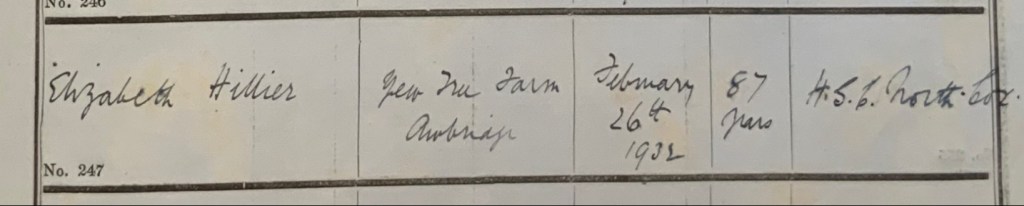 No. 246
Elizabeth Hillier
Yew Tree Farm
Awbridge
February
26th
1932
87
years
H. S. C. North-Cox.
No. 247